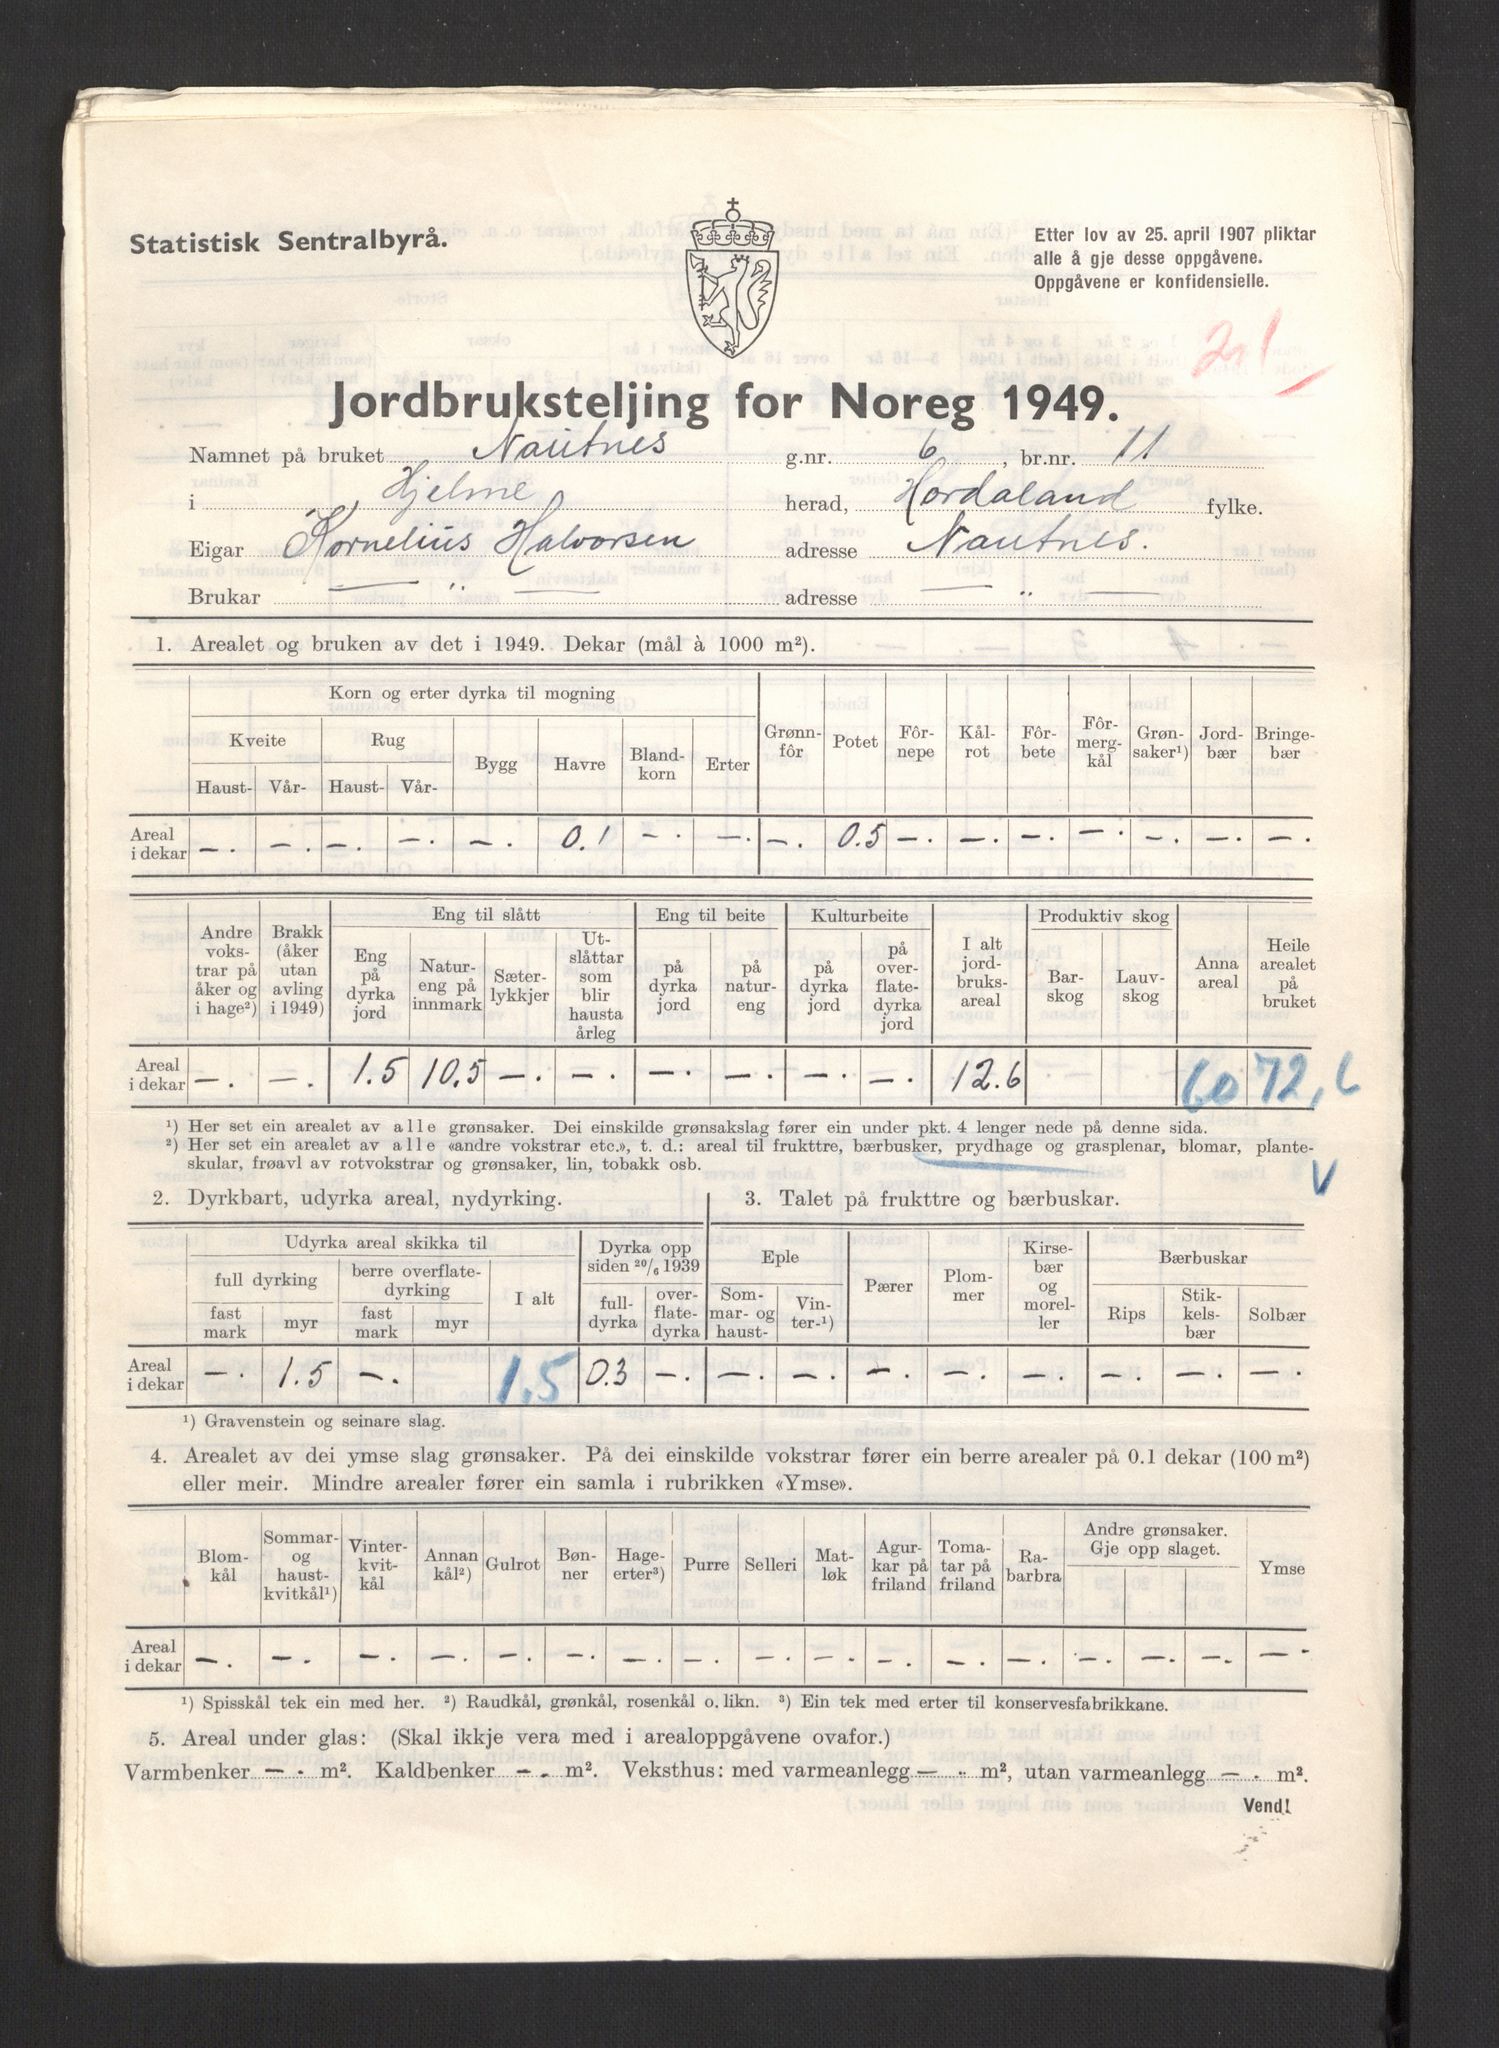 Statistisk Sentralbyrå.
Etter lov av 25. april 1907 pliktar
alle å gje desse oppgåvene.
Oppgåvene er konfidensielle.
21
Jordbruksteljing for Noreg 1949.
Namnet på bruket Nautnes g.nr. 6, br.nr. 11
i Hjelme herad, Hordaland fylke.
Eigar Kornelius Halvorsen adresse Nautnes.
Brukar — " — adresse — " —
1. Arealet og bruken av det i 1949. Dekar (mål à 1000 m²).
Korn og erter dyrka til mogning
Kveite Rug Bygg Havre Bland-korn Erter Grønn-fôr Potet Fôr-nepe Kål-rot Fôr-bete Fôr-merg-kål Grøn-saker¹) Jord-bær Bringe-bær
Haust- Vår- Haust- Vår-
Areal i dekar —. —. —. —. —. 0.1 —. —. —. 0.5 —. —. —. —. —. —. —.
Andre voks-trar på åker og i hage²) Brakk (åker utan avling i 1949) Eng til slått Eng til beite Kulturbeite I alt jord-bruks-areal Produktiv skog Anna areal Heile arealet på bruket
Eng på dyrka jord Natur-eng på innmark Sæter-lykkjer Ut-slåttar som blir hausta årleg på dyrka jord på natur-eng på dyrka jord på over-flate-dyrka jord Bar-skog Lauv-skog
Areal i dekar —. —. 1.5 10.5 —. —. —. —. —. —. 12.6 60 72,6
¹) Her set ein arealet av alle grønsaker. Dei einskilde grønsakslag fører ein under pkt. 4 lenger nede på denne sida.
²) Her set ein arealet av alle «andre vokstrar etc.», t. d.: areal til frukttre, bærbusker, prydhage og grasplenar, blomar, plante-
skular, frøavl av rotvokstrar og grønsaker, lin, tobakk osb.
V
2. Dyrkbart, udyrka areal, nydyrking.
Udyrka areal skikka til Dyrka opp siden 20/6 1939
full dyrking berre overflate-dyrking I alt full-dyrka over-flate-dyrka
fast mark myr fast mark myr
Areal i dekar —. 1.5 —. 1,5 0.3 —.
3. Talet på frukttre og bærbuskar.
Eple Pærer Plom-mer Kirse-bær og morel-ler Bærbuskar
Som-mar- og haust- Vin-ter-¹) Rips Stik-kels-bær Solbær
—. —. —. —. —. —. —. —.
¹) Gravenstein og seinare slag.
4. Arealet av dei ymse slag grønsaker. På dei einskilde vokstrar fører ein berre arealer på 0.1 dekar (100 m²)
eller meir. Mindre arealer fører ein samla i rubrikken «Ymse».
Blom-kål Sommar- og haust-kvitkål¹) Vinter-kvit-kål Annan kål²) Gulrot Bøn-ner Hage-erter³) Purre Selleri Mat-løk Agur-kar på friland Toma-tar på friland Ra-barbra Andre grønsaker. Gje opp slaget. Ymse
Areal i dekar —. —. —. —. —. —. —. —. —. —. —. —. —. —. —. —. —.
¹) Spisskål tek ein med her. ²) Raudkål, grønkål, rosenkål o. likn. ³) Ein tek med erter til konservesfabrikkane.
5. Areal under glas: (Skal ikkje vera med i arealoppgåvene ovafor.)
Varmbenker —. m². Kaldbenker —. m². Veksthus: med varmeanlegg —. m², utan varmeanlegg —. m².
Vend!